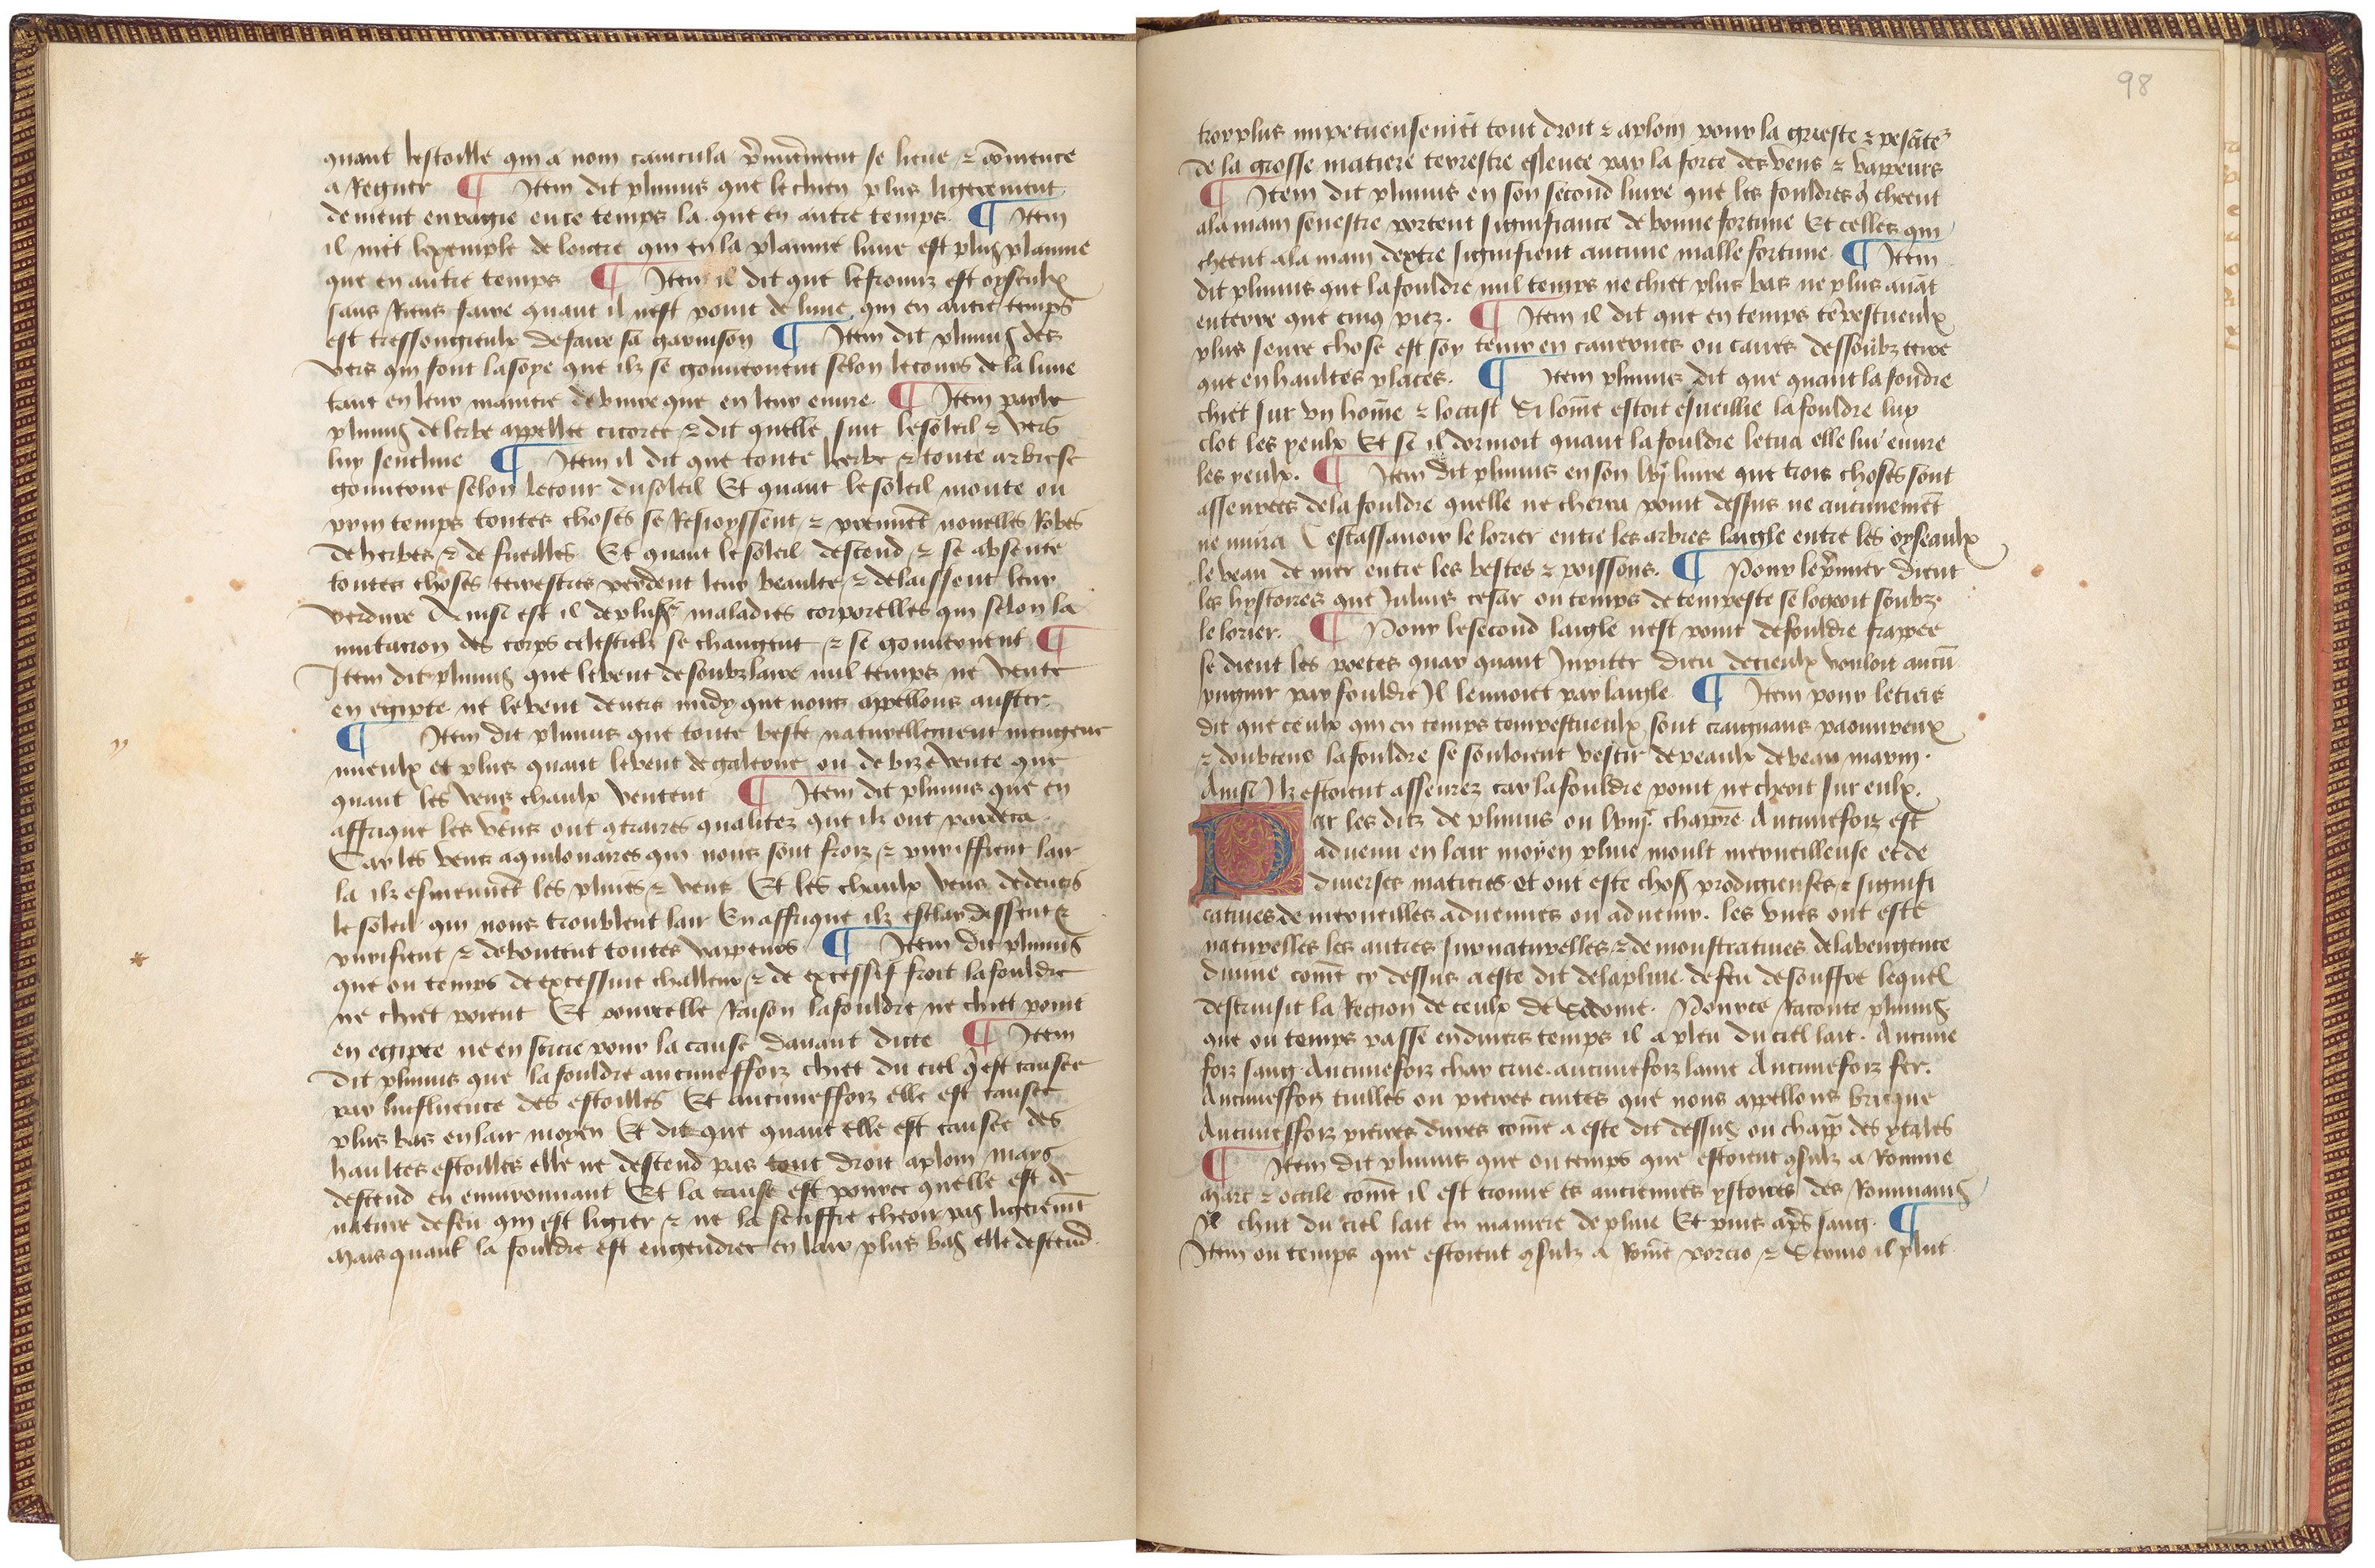 quant lestoille qui a nom canicula p̃mierement se lieue ⁊ cõmence
a Regner ¶ Item dit plinius que le chien plus ligierement
deuient enragie en ce temps la que en autre temps. ¶ Item
il met lexemple de loistre qui en la plaine lune est plus plaine
que en autre temps ¶ Item il dit que le fromiz est oyseulx
sans Riens faire quant il nest point de lune qui en autre temps
est tressongneulx de faire sa garnison ¶ Item dit plinius des
vers qui font la soye que ilz se gouuernent selon le cours de la lune
tant en leur maniere de viure que en leur euure. ¶ Item parle
plinius de lerbe appellee cicoree ⁊ dit quelle suit le soleil ⁊ vers
luy sencline ¶ Item il dit que toute herbe ⁊ toute arbre se
gouuerne selon le tour du soleil Et quant le soleil monte ou
prin temps toutes choses se Resioyssent ⁊ prennẽt nouelles Robes
de herbes ⁊ de fueilles Et quant le soleil descend ⁊ se absente
toutes choses terrestres perdent leur beaulte ⁊ delaissent leur
verdure Ainsi est il de plusrs maladies corporelles qui selon la
mutacion des corps celestielz se changent ⁊ se gouuernent ¶
Item dit plinius que le vent desoubz laire nul temps ne vente
en egipte ne le vent deuers midy que nous appellons auster.
¶ Item dit plinius que toute beste naturellement mengeue
mieulx et plus quant le vent de galerne ou de bize vente que
quant les vens chaulx ventent ¶ Item dit plinius que en
affrique les vens ont ꝯtraires qualitez que ilz ont pardeca
Car les vens aquilonaires qui nous sont froiz ⁊ purifient lair
la ilz esmeuuẽt les pluies ⁊ vens Et les chaulx vens dedeuers
le soleil qui nous troublent lair En affrique ilz esclardissent ⁊
purifient ⁊ deboutent toutes vappeurs ¶ Item dit plinius
que ou temps de excessiue challeur ⁊ de excessif froit la fouldre
ne chiet point Et pour telle Raison la fouldre ne chiet point
en egipte ne en sicie pour la cause dauant dicte ¶ Item
dit plinius que la fouldre aucuneffoiz chiet du ciel q̃ est causee
par linfluence des estoilles Et aucuneffoiz elle est causee
plus bas en lair moyen Et dit que quant elle est causee des
haultes estoilles elle ne descend pas tout droit aplom mays
descend en enuironnant Et la cause est pource quelle est de
nature de feu qui est ligier ⁊ ne la seuffre cheoir pas ligieremẽt
Mais quant la fouldre est engendree en lair plus bas elle descend
98
trop plus impetueusemẽt tout droit ⁊ aplom pour la grieste ⁊ pesãte
de la grosse matiere terrestre esleuee par la force des vens ⁊ vappeurs
¶ Item dit plinius en son second liure que les fouldres q̃ cheent
a la main senestre portent signifiance de bonne fortune Et celles qui
cheent a la main dextre signifient aucune malle fortune ¶ Item
dit plinius que la fouldre nul temps ne chiet plus bas ne plus auãt
en terre que cinq piez. ¶ Item il dit que en temps tẽpestueulx
plus seure chose est soy tenir en cauernes ou caues dessoubz terre
que en haultes places. ¶ Item plinius dit que quant la foudre
chiet sur vn hom̃e ⁊ loccist Si lom̃e estoit esueillie la fouldre luy
clot les yeulx Et se il dormoit quant la fouldre le tua elle lui euure
les yeulx. ¶ Item dit plinius en son lvj liure que trois choses sont
asseurees de la fouldre quelle ne cherra point dessus ne aucunemẽt
ne nuira Cestassauoir le lorier entre les arbres laigle entre les oyseaulx
le veau de mer entre les bestes ⁊ poissons. ¶ Pour le p̃mier dient
les hystoires que Julius cesar ou temps de tempeste se logeoit soubz
le lorier. ¶ Pour le second laigle nest point de fouldre frappee
se dient les poetes quar quant Jupiter dieu de cieulx vouloit aucũ
pugnir par fouldre Il lenuoiet par laigle ¶ Item pour le tiers
dit que ceulx qui en temps tempestueulx sont craignans paoureux
⁊ doubteus la fouldre se souloient vestir de peaulx de veau marin.
Ainsi Ilz estoient asseurez car la fouldre point ne cheoit sur eulx.
Par les ditz de plinius ou lviij. chapp̃e Aucunefoiz est
aduenu en lair moyen pluie moult merueilleuse et de
diuerses matieres et ont este choses prodigieuses ⁊ signifi
catiues de merueilles aduenues ou aduenir. les vnes ont este
naturelles les autres surnaturelles ⁊ demonstratiues de la vengence
diuine com̃e cy dessus a este dit de la pluie de feu de souffre lequel
destruisit la Region de ceulx de Sodome. Pource Raconte plinius
que ou temps passe en diuers temps il a pleu du ciel lait. Aucune
foiz sang. Aucunefoiz char crue. aucunefoiz laine Aucunefoiz fer.
Aucuneffoiz tuilles ou pierres cuites que nous appellons bricque
Aucuneffoiz pierres dures com̃e a este dit dessus ou chapp̃ des ytales
¶ Item dit plinius que ou temps que estoient ꝯsulz a Romme
Marc ⁊ occile com̃e il est trouue es anciennes ystoires des Rommains
Il chut du ciel lait en maniere de pluie Et puis ap̃s sang. ¶
Item ou temps que estoient ꝯsulz a Rom̃e porcio ⁊ Seruio il plut